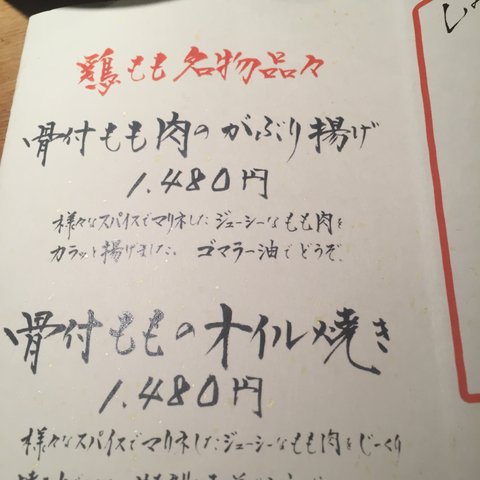 鶏もも名物品々
骨付もも肉のがぶり揚げ
1.480円
様々なスパイスでマリネしたジューシーなもも肉を
カラッと揚げました。ゴマラー油でどうぞ。
骨付もものオイル焼き
1.480円
様々なスパイスでマリネしたジューシーなもも肉をじっくり